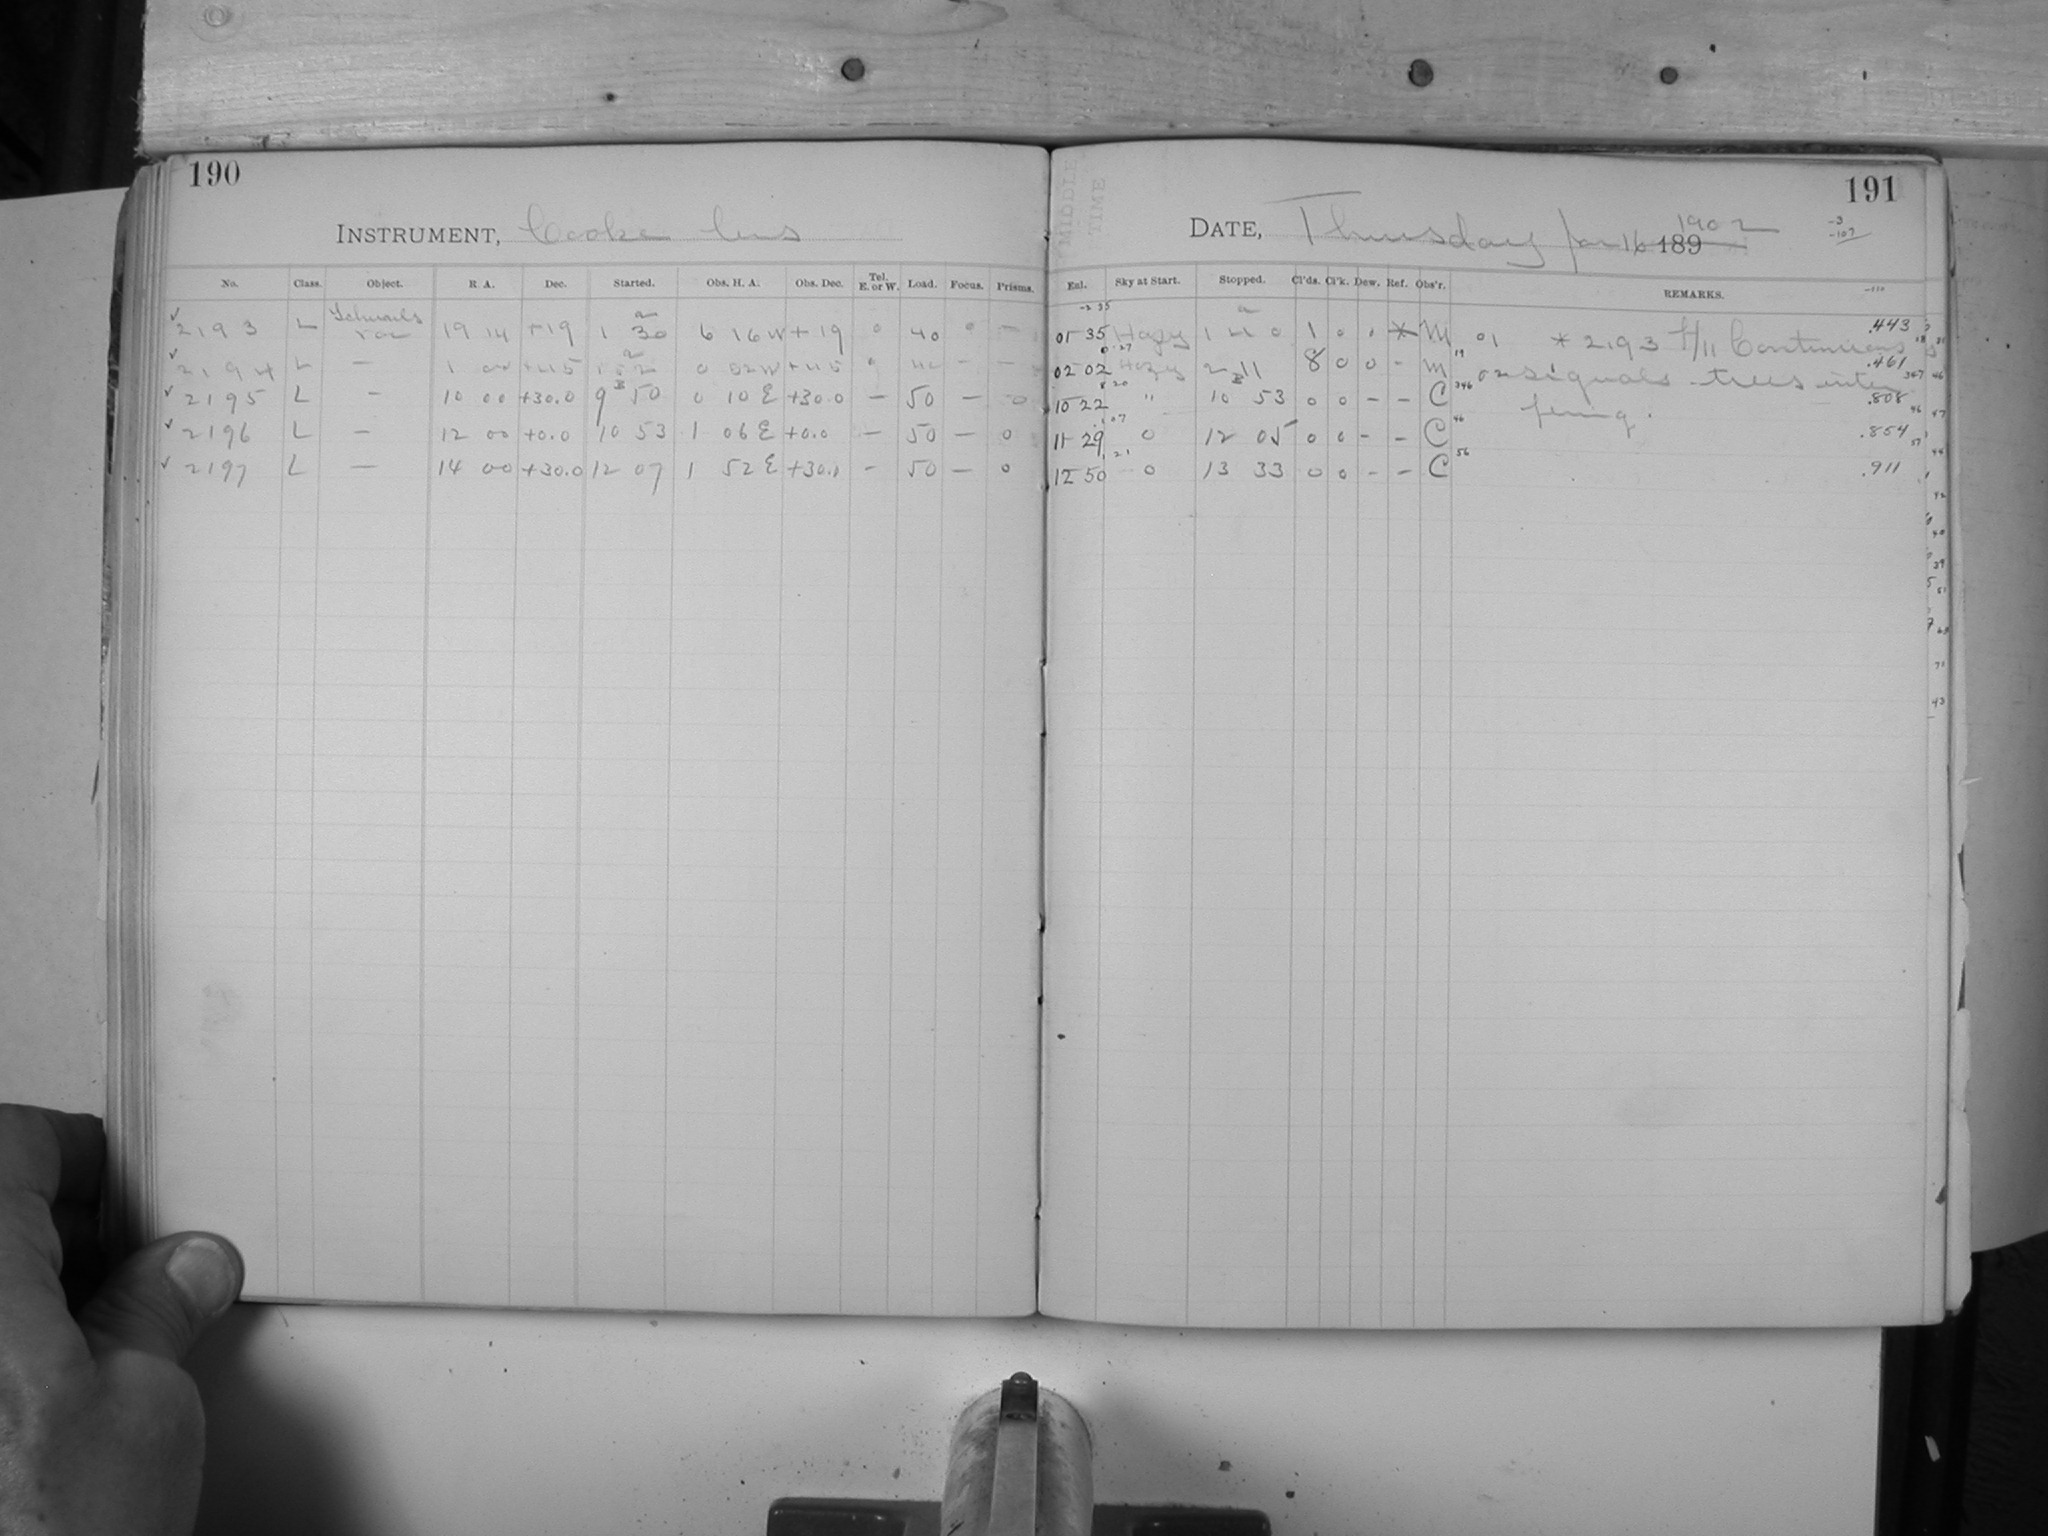 190
INSTRUMENT, Cooke lens
No. Class. Object. R. A. Dec. Started. Obs. H. A. Obs. Dec. Tel. E. or W. Load. Focus. Prisms.
2193 L 19 14 +19 1 30 6 16 W +19 0 40 0 —
2194 L — 1 00 +45 1 52 0 52 W +45 — —
2195 L — 10 00 +30.0 9 50 0 10 E +30.0 — 50 — 0
2196 L — 12 00 +0.0 10 53 1 06 E +0.0 — 50 — 0
2197 L — 14 00 +30.0 12 07 1 52 E +30.0 — 50 — 0
191
MIDDLE TIME
DATE, Thursday Jan 16 189 1902
-3
-107
-110
Exl. Sky at Start. Stopped. Cl'ds. Cl'k. Dew. Ref. Obs'r. REMARKS.
01 35 Hazy 1 40 1 0 0 * M 01 * 2193 f/11 Continuous .443
02 02 Hazy 2 11 8 0 0 - M 02 signals trees inter .461
10 22 " 10 53 0 0 - - C fering. .808
11 29 0 12 05 0 0 - - C .854
12 50 0 13 33 0 0 - - C .911